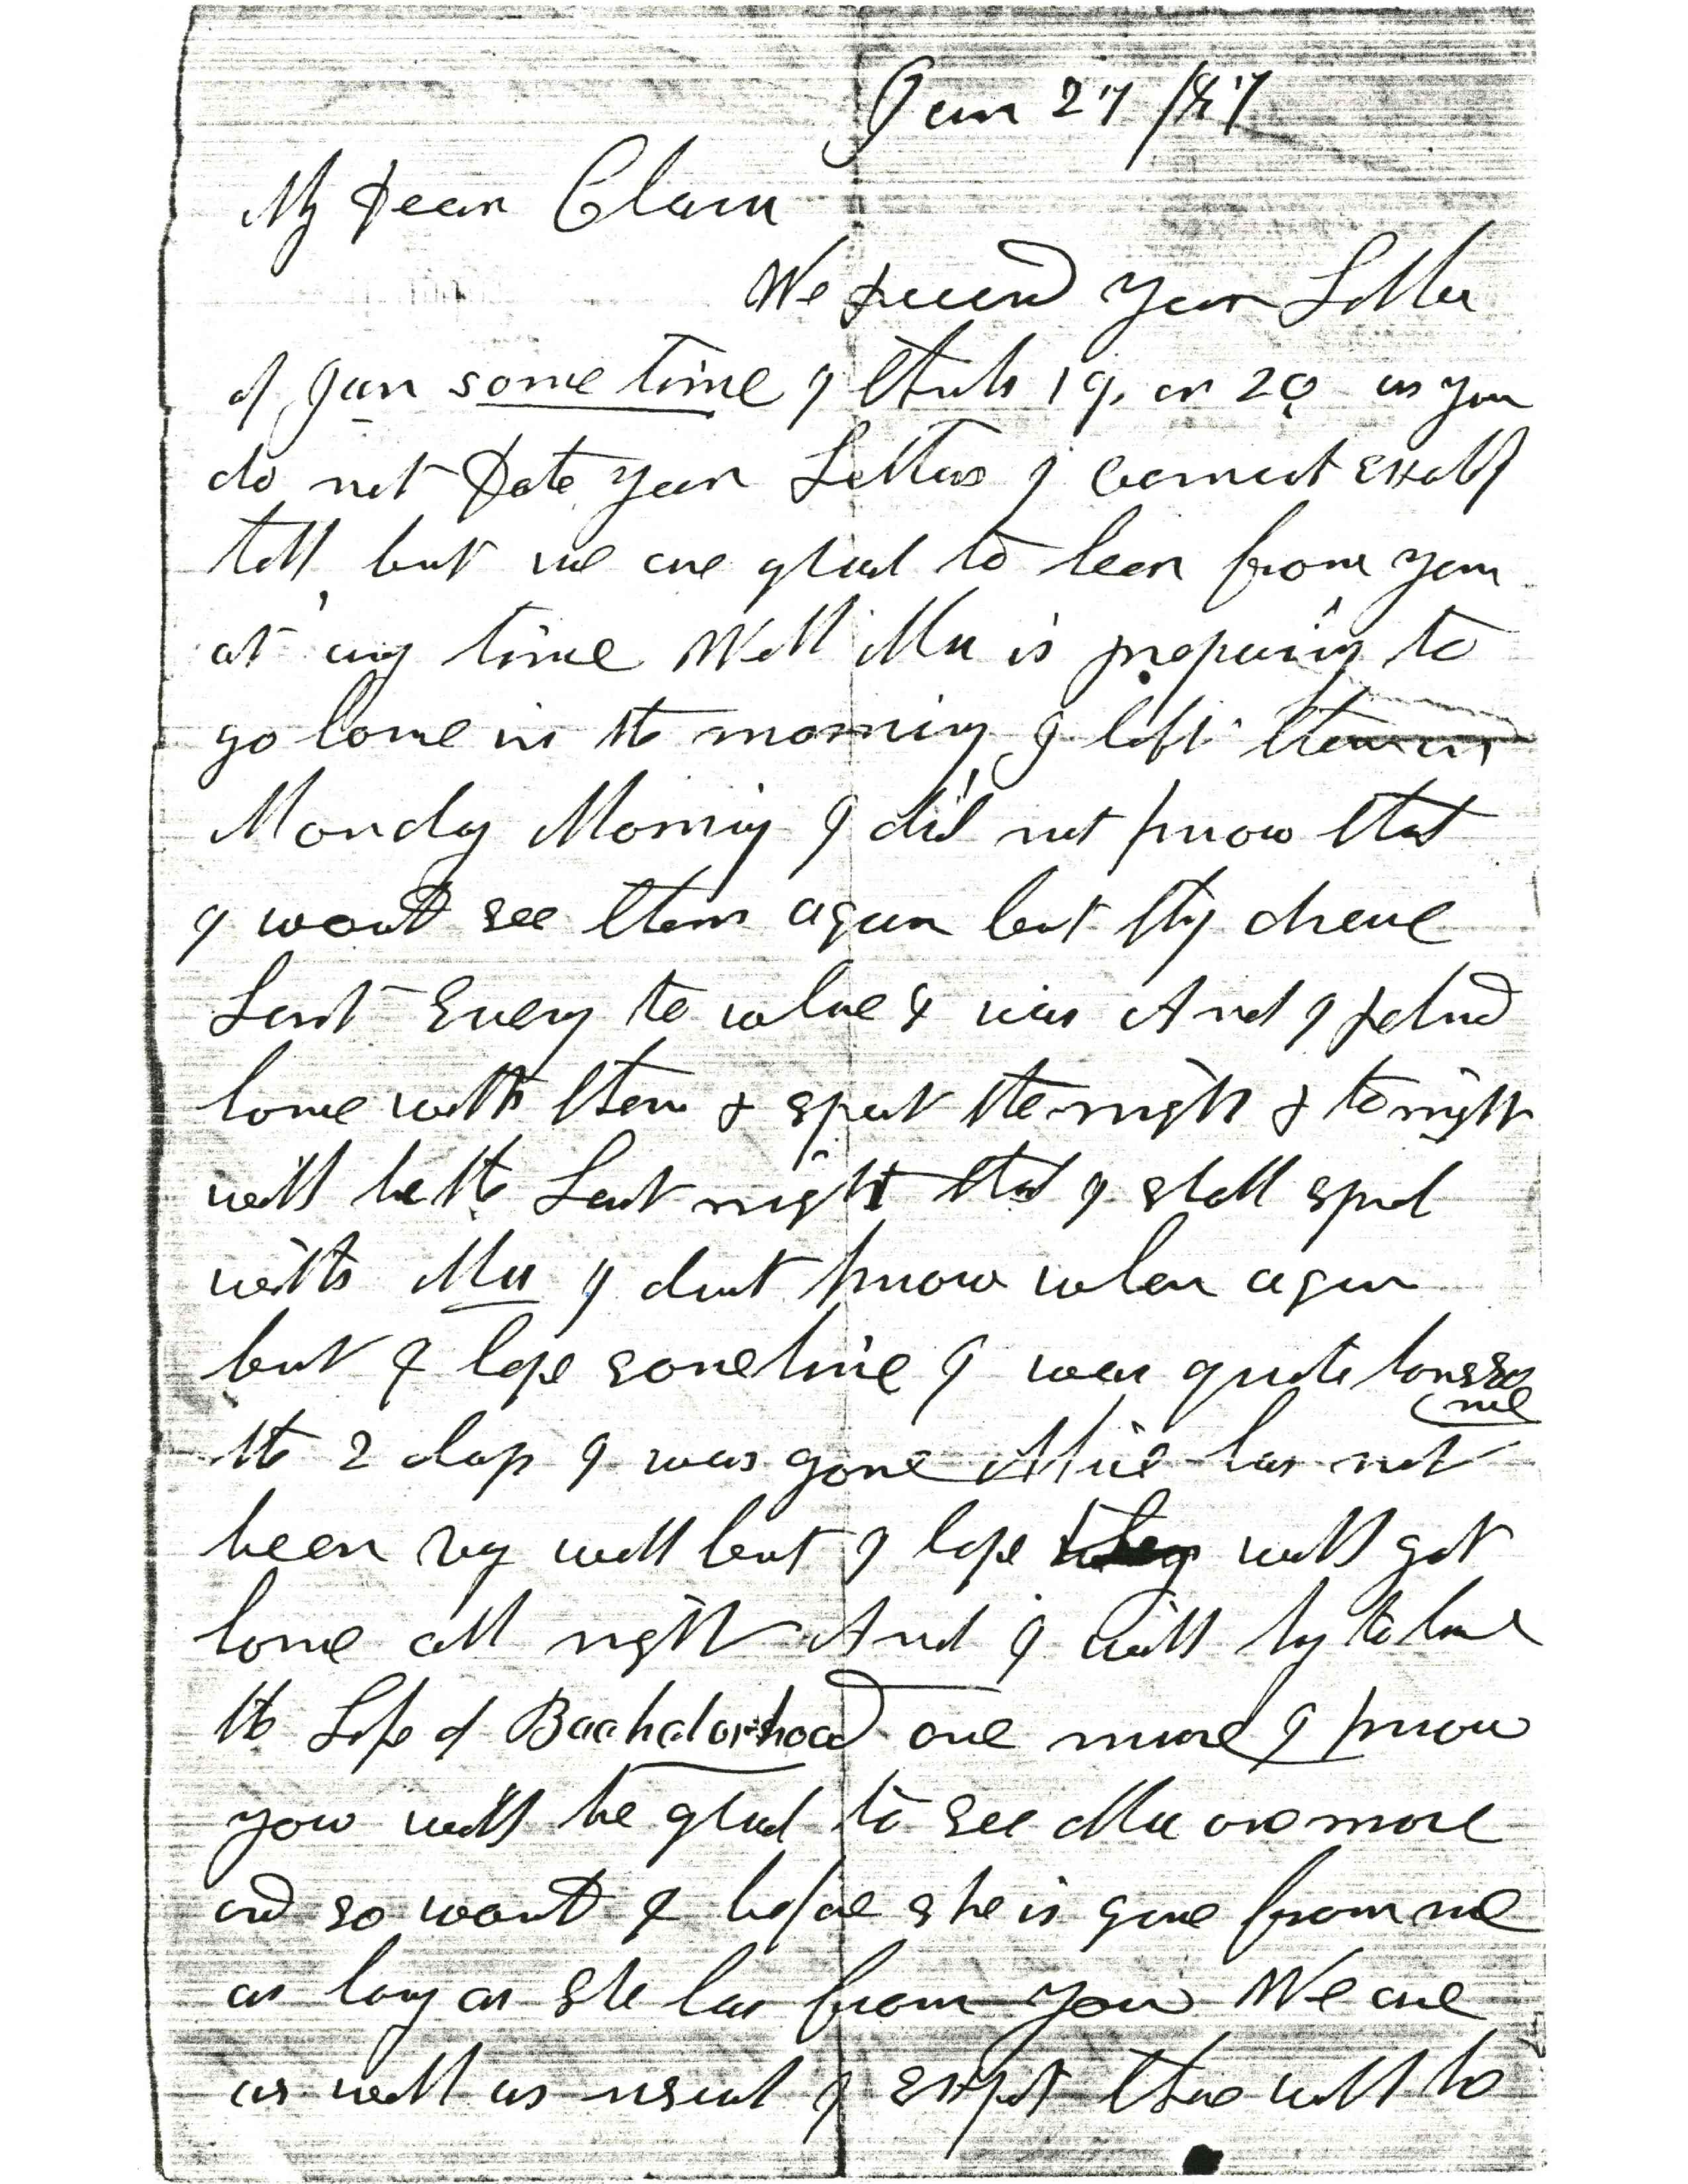 Jan 27 /87
My Dear Clara
We received your Letter
of Jan some time I think 19, or 20 as you
do not Date your Letters I cannot exactly
tell, but we are glad to hear from you
at any time Well Ma is preparing to
go home in the morning I left them
Monday Morning I did not know that
I would see them again but they drove
Last Every to where I was And I
home with them & spent the night & tonight
will be the Last night that I shall spend
with Ma I dont know when again
but I hope sometime I was quite lonesome
the 2 days I was gone Alice has not
been very well but I hope they will get
home all right And I will try to
the Life of Bachelorhood one more I know
you will be glad to see Ma one more
and so would I before she is gone from me
as long as she has from you We are
as well as usual I expect there will be